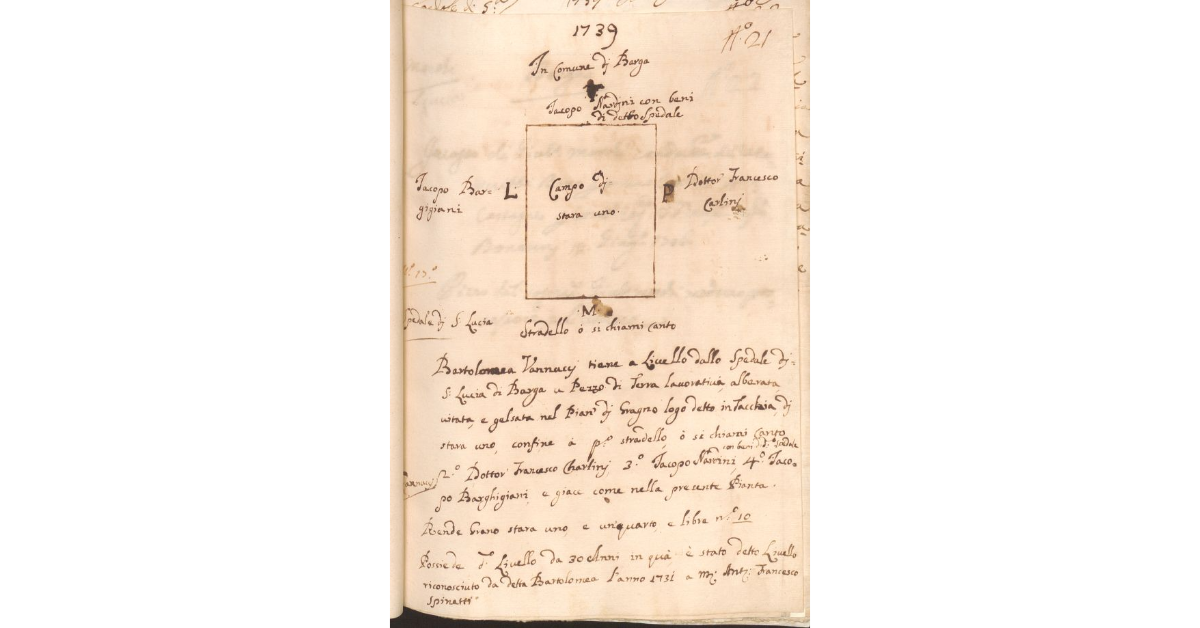 1739
N.º 21
In Comune dj Barga
Jacopo Nardini con beni
di detto Spedale
Jacopo Bar=
gigiani
L
Campo dj
stara uno.
P
Dottor Francesco
Carlinj
Spedale dj S. Lucia
M
Stradello ò si chiami Canto
Bartolomea Vannucj tiene a Livello dallo Spedale dj=
S. Lucia di Barga u Pezzo di Terra lavorativa, alberata,
vitata, e gelsata nel Pian dj Gragno logo detto in dj
stara uno, confine à pº stradello, ò si chiami Canto
con beni d. Spedale
2.º Dottor Francesco Charlinj 3.º Jacopo Nardini, 4.º Jaco=
po Barghigiani, e giace come nella presente Pianta.
Rende Grano stara uno, e un quarto, e libre nº 10
Possiede d.º Livello da 30 Anni in quà è stato detto Livello
riconosciuto da detta Bartolomea l'anno 1731 a Francesco
Spinatti